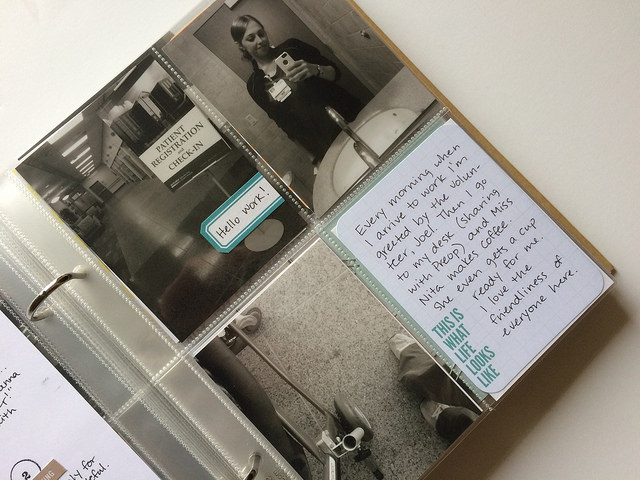 PATIENT
REGISTRATION
and
CHECK-IN
Hello work!
Every morning when
I arrive to work I'm
greeted by the volun-
teer, Joel. Then I go
to my desk (sharing
with Preop) and Miss
Nita makes coffee.
She even gets a cup
ready for me.
I love the
friendliness of
everyone here.
THIS IS
WHAT
LIFE
LOOKS
LIKE
with
2
ly for